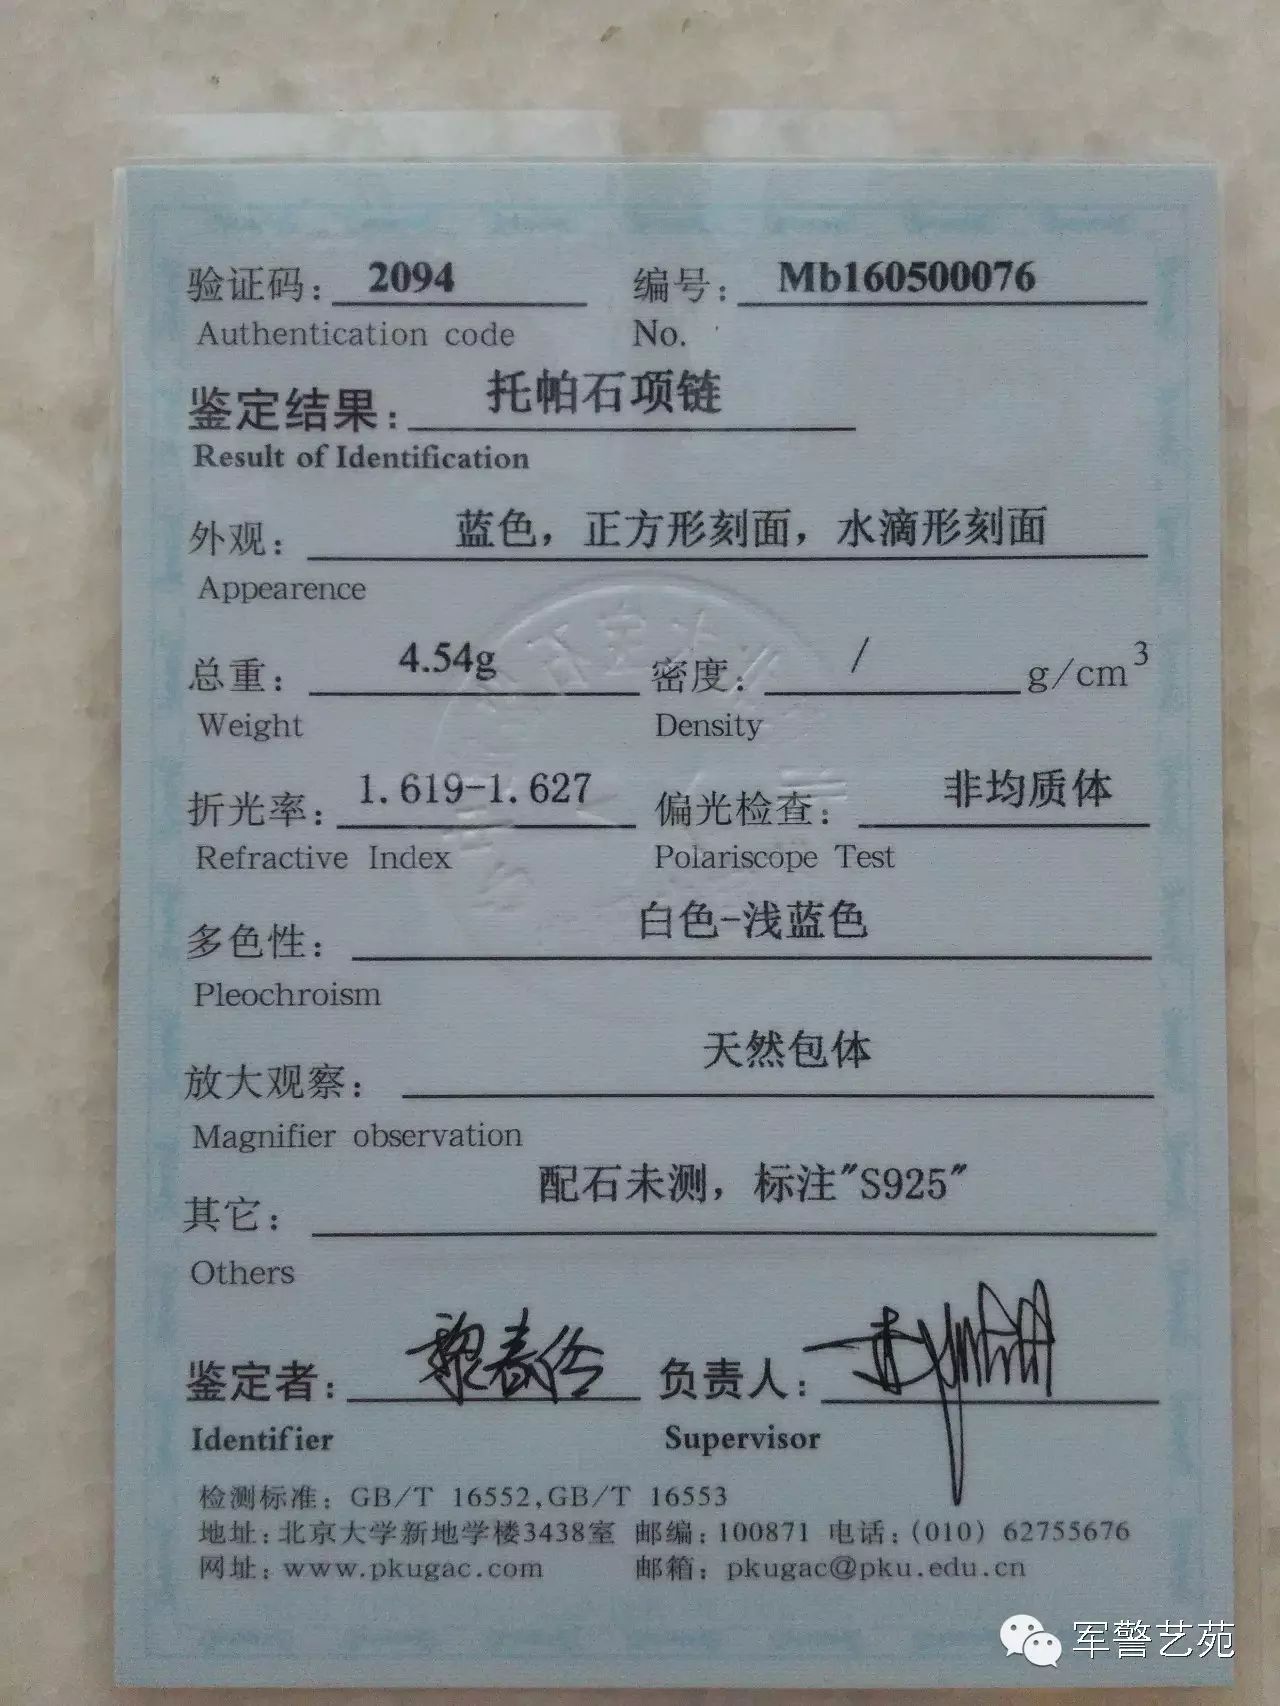 验证码: 2094 编号: Mb160500076
Authentication code No.
鉴定结果: 托帕石项链
Result of Identification
外观: 蓝色，正方形刻面，水滴形刻面
Appearence
总重: 4.54g 密度: / g/cm³
Weight Density
折光率: 1.619-1.627 偏光检查: 非均质体
Refractive Index Polariscope Test
多色性: 白色-浅蓝色
Pleochroism
放大观察: 天然包体
Magnifier observation
其它: 配石未测，标注"S925"
Others
鉴定者: 负责人:
Identifier Supervisor
检测标准: GB/T 16552,GB/T 16553
地址:北京大学新地学楼3438室 邮编:100871 电话:(010) 62755676
网址: www.pkugac.com 邮箱: pkugac@pku.edu.cn
军警艺苑